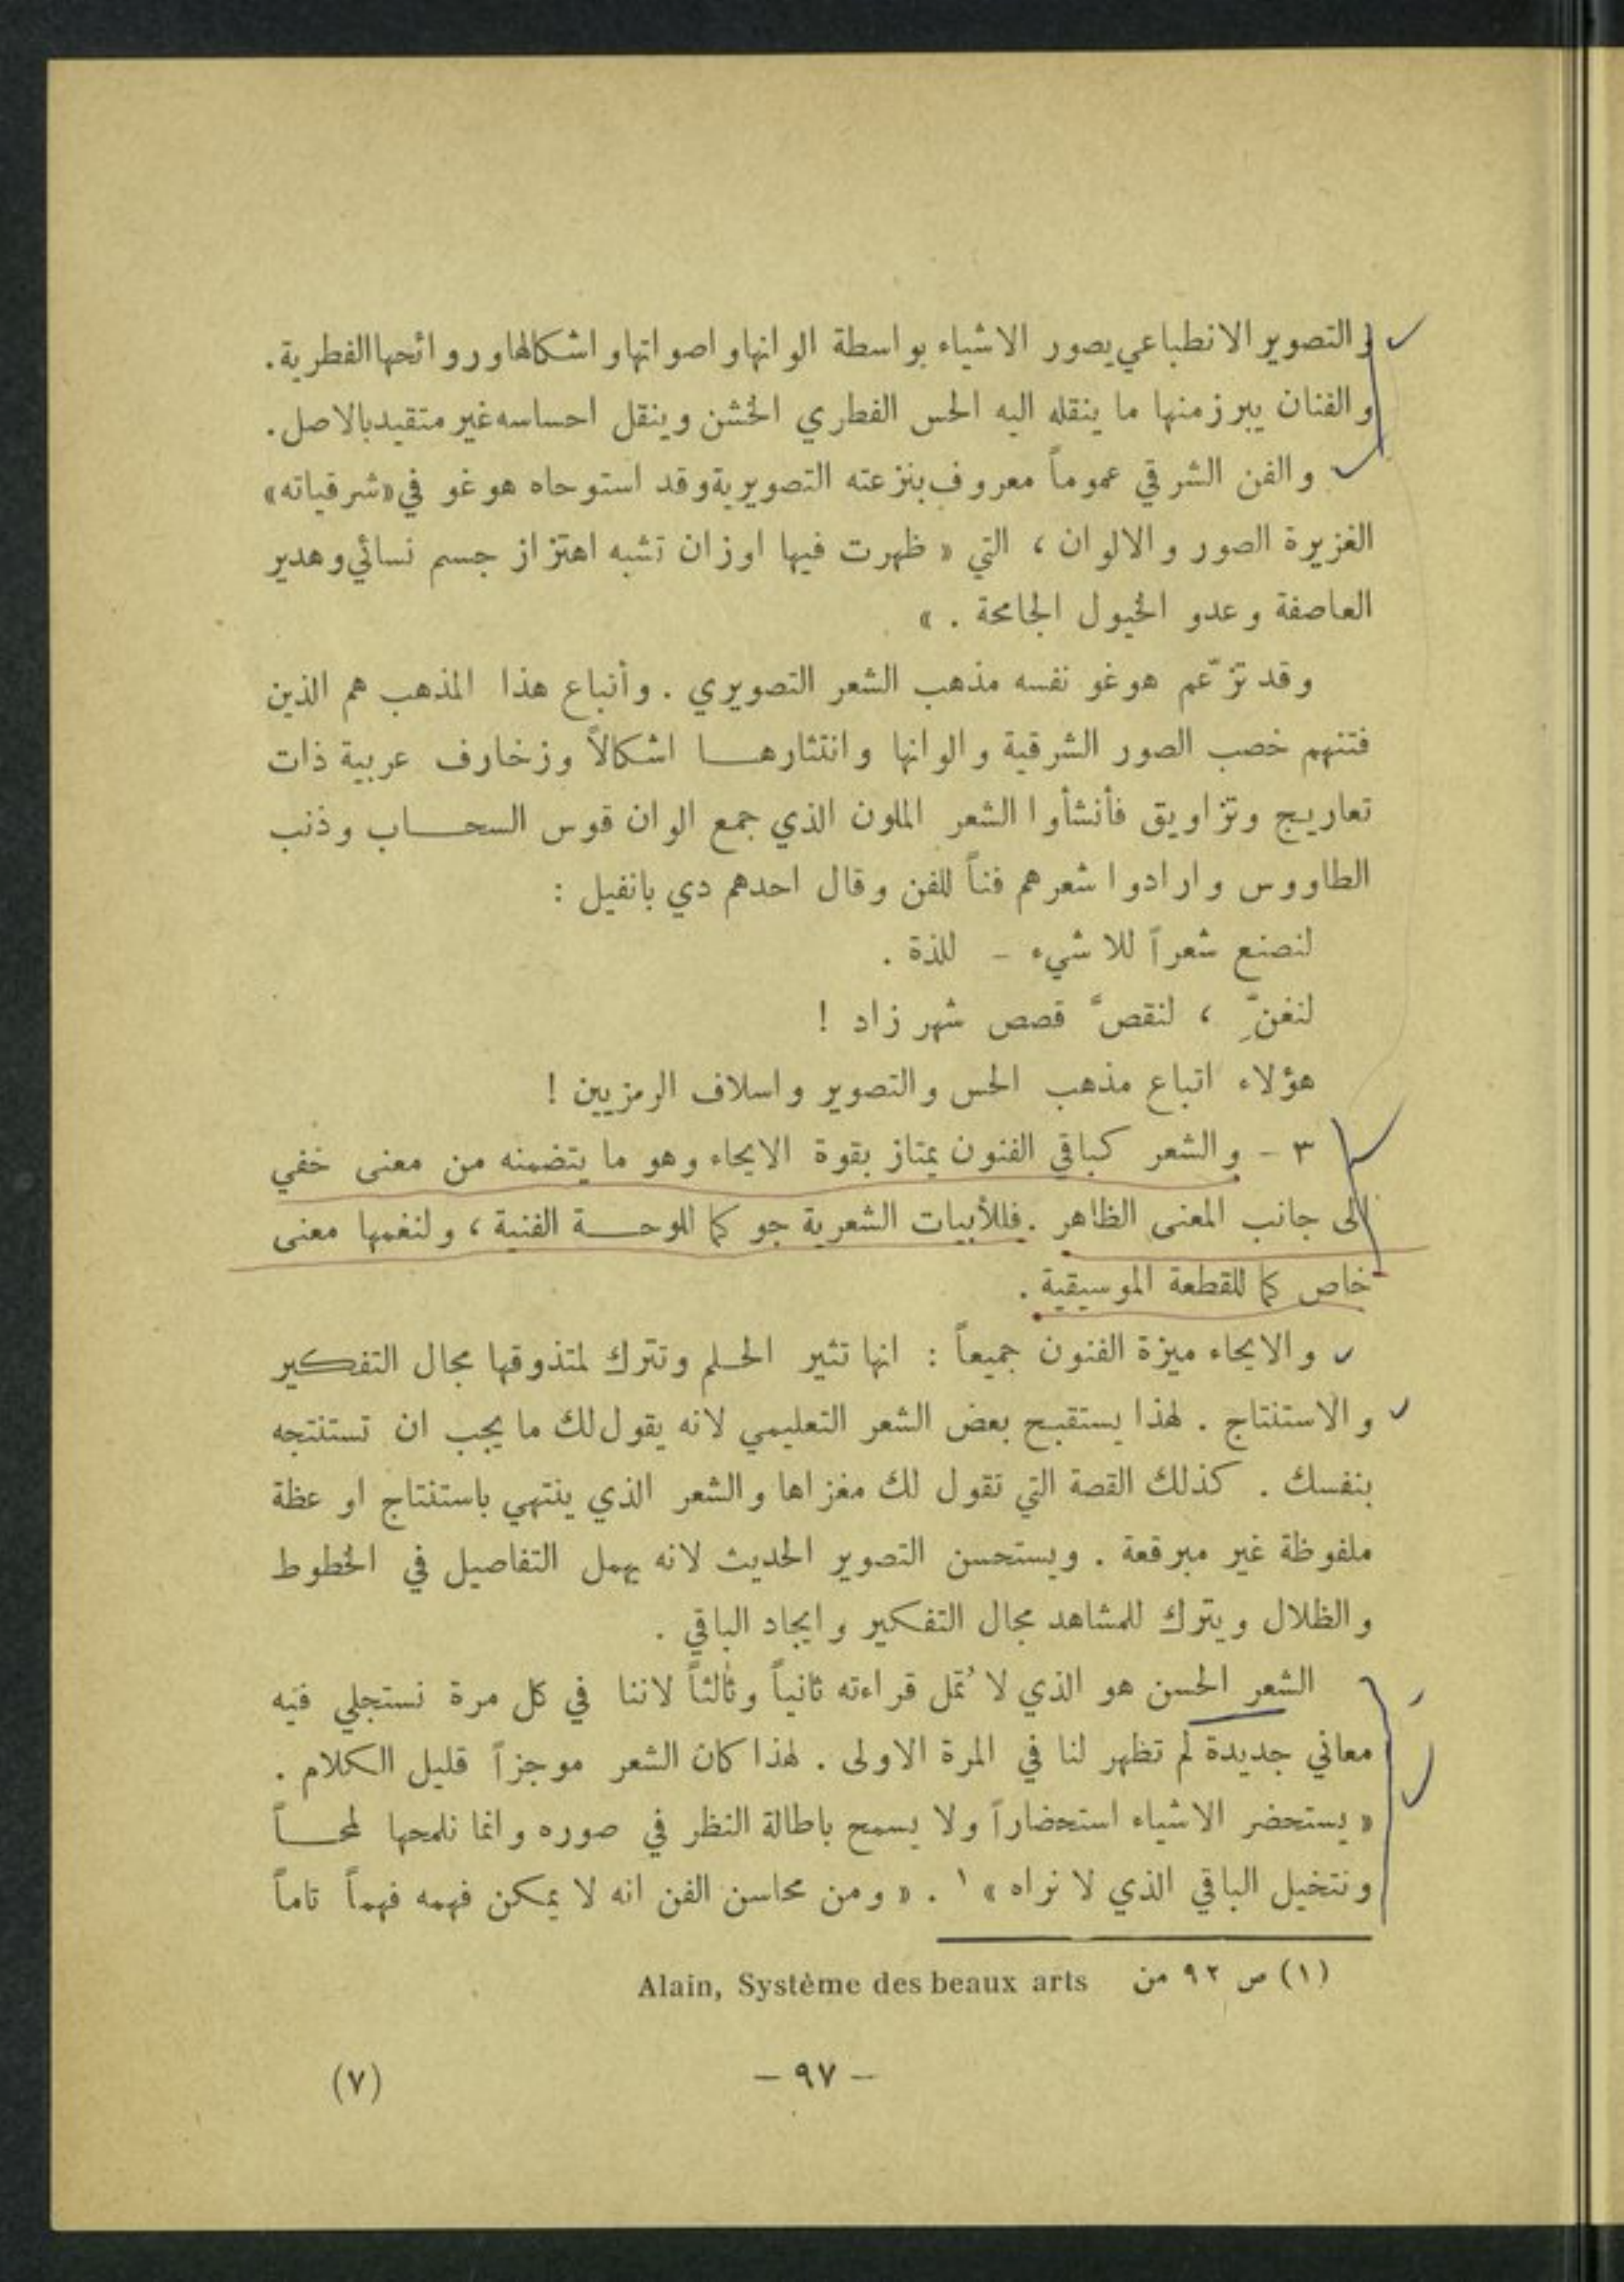 والتصوير الانطباعي يصور الاشياء بواسطة الوانها واصواتها واشكالها وروائحها الفطرية.
والفنان يبرز منها ما ينقله اليه الحس الفطري الخشن وينقل احساسه غير متقيد بالاصل.
والفن الشرقي عموماً معروف بنزعته التصويرية وقد استوحاه هوغو في «شرقياته»
الغزيرة الصور والالوان ، التي « ظهرت فيها اوزان تشبه اهتزاز جسم نسائي وهدير
العاصفة وعدو الخيول الجامحة . »
وقد تزعّم هوغو نفسه مذهب الشعر التصويري . وأتباع هذا المذهب هم الذين
فتنهم خصب الصور الشرقية والوانها وانتثارهـا اشكالاً وزخارف عربية ذات
تعاريج وتزاويق فأنشأوا الشعر الملون الذي جمع الوان قوس السحـاب وذنب
الطاووس وارادوا شعرهم فناً للفن وقال احدهم دي بانفيل :
لنصنع شعراً للا شيء – للذة .
لنغنِّ ، لنقصَّ قصص شهرزاد !
هؤلاء اتباع مذهب الحس والتصوير واسلاف الرمزيين !
٣ – والشعر كباقي الفنون يمتاز بقوة الايحاء وهو ما يتضمنه من معنى خفي
الى جانب المعنى الظاهر . فللأبيات الشعرية جو كما للوحـة الفنية ، ولنغمها معنى
خاص كما للقطعة الموسيقية .
والايحاء ميزة الفنون جميعاً : انها تثير الحـلم وتترك لمتذوقها مجال التفكير
والاستنتاج . لهذا يستقبح بعض الشعر التعليمي لانه يقول لك ما يجب ان تستنتجه
بنفسك . كذلك القصة التي تقول لك مغزاها والشعر الذي ينتهي باستنتاج او عظة
ملفوظة غير مبرقعة . ويستحسن التصوير الحديث لانه يهمل التفاصيل في الخطوط
والظلال ويترك للمشاهد مجال التفكير وايجاد الباقي .
الشعر الحسن هو الذي لا تُمَل قراءته ثانياً وثالثاً لاننا في كل مرة نستجلي فيه
معاني جديدة لم تظهر لنا في المرة الاولى . لهذا كان الشعر موجزاً قليل الكلام .
« يستحضر الاشياء استحضاراً ولا يسمح باطالة النظر في صوره وانما نلمحها لمحـاً
ونتخيل الباقي الذي لا نراه » ١ . « ومن محاسن الفن انه لا يمكن فهمه فهماً تاماً
(١) ص ٩٢ من Alain, Système des beaux arts
– ٩٧ –
(٧)